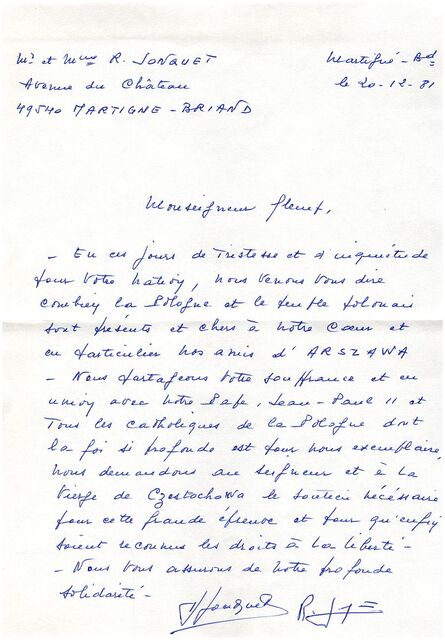 Mr et Mme R. JONQUET
Martigné-Bd
Avenue du Château
le 20-12-81
49540 MARTIGNE-BRIAND
Monseigneur Glemp,
- En ces jours de Tristesse et d'inquiétude
pour Votre Nation, nous venons vous dire
combien la Pologne et le peuple polonais
sont présents et chers à notre Cœur et
en particulier nos amis d'ARSZAWA
- Nous partageons Votre souffrance et en
union avec notre Pape, Jean-Paul II et
Tous les catholiques de la Pologne dont
la foi si profonde est pour nous exemplaire,
nous demandons au Seigneur et à La
Vierge de Czestochowa le soutien nécessaire
pour cette grande épreuve et pour qu'enfin
soient reconnus les droits à La liberté-
- Nous Vous assurons de notre profonde
solidarité-
Jonquet